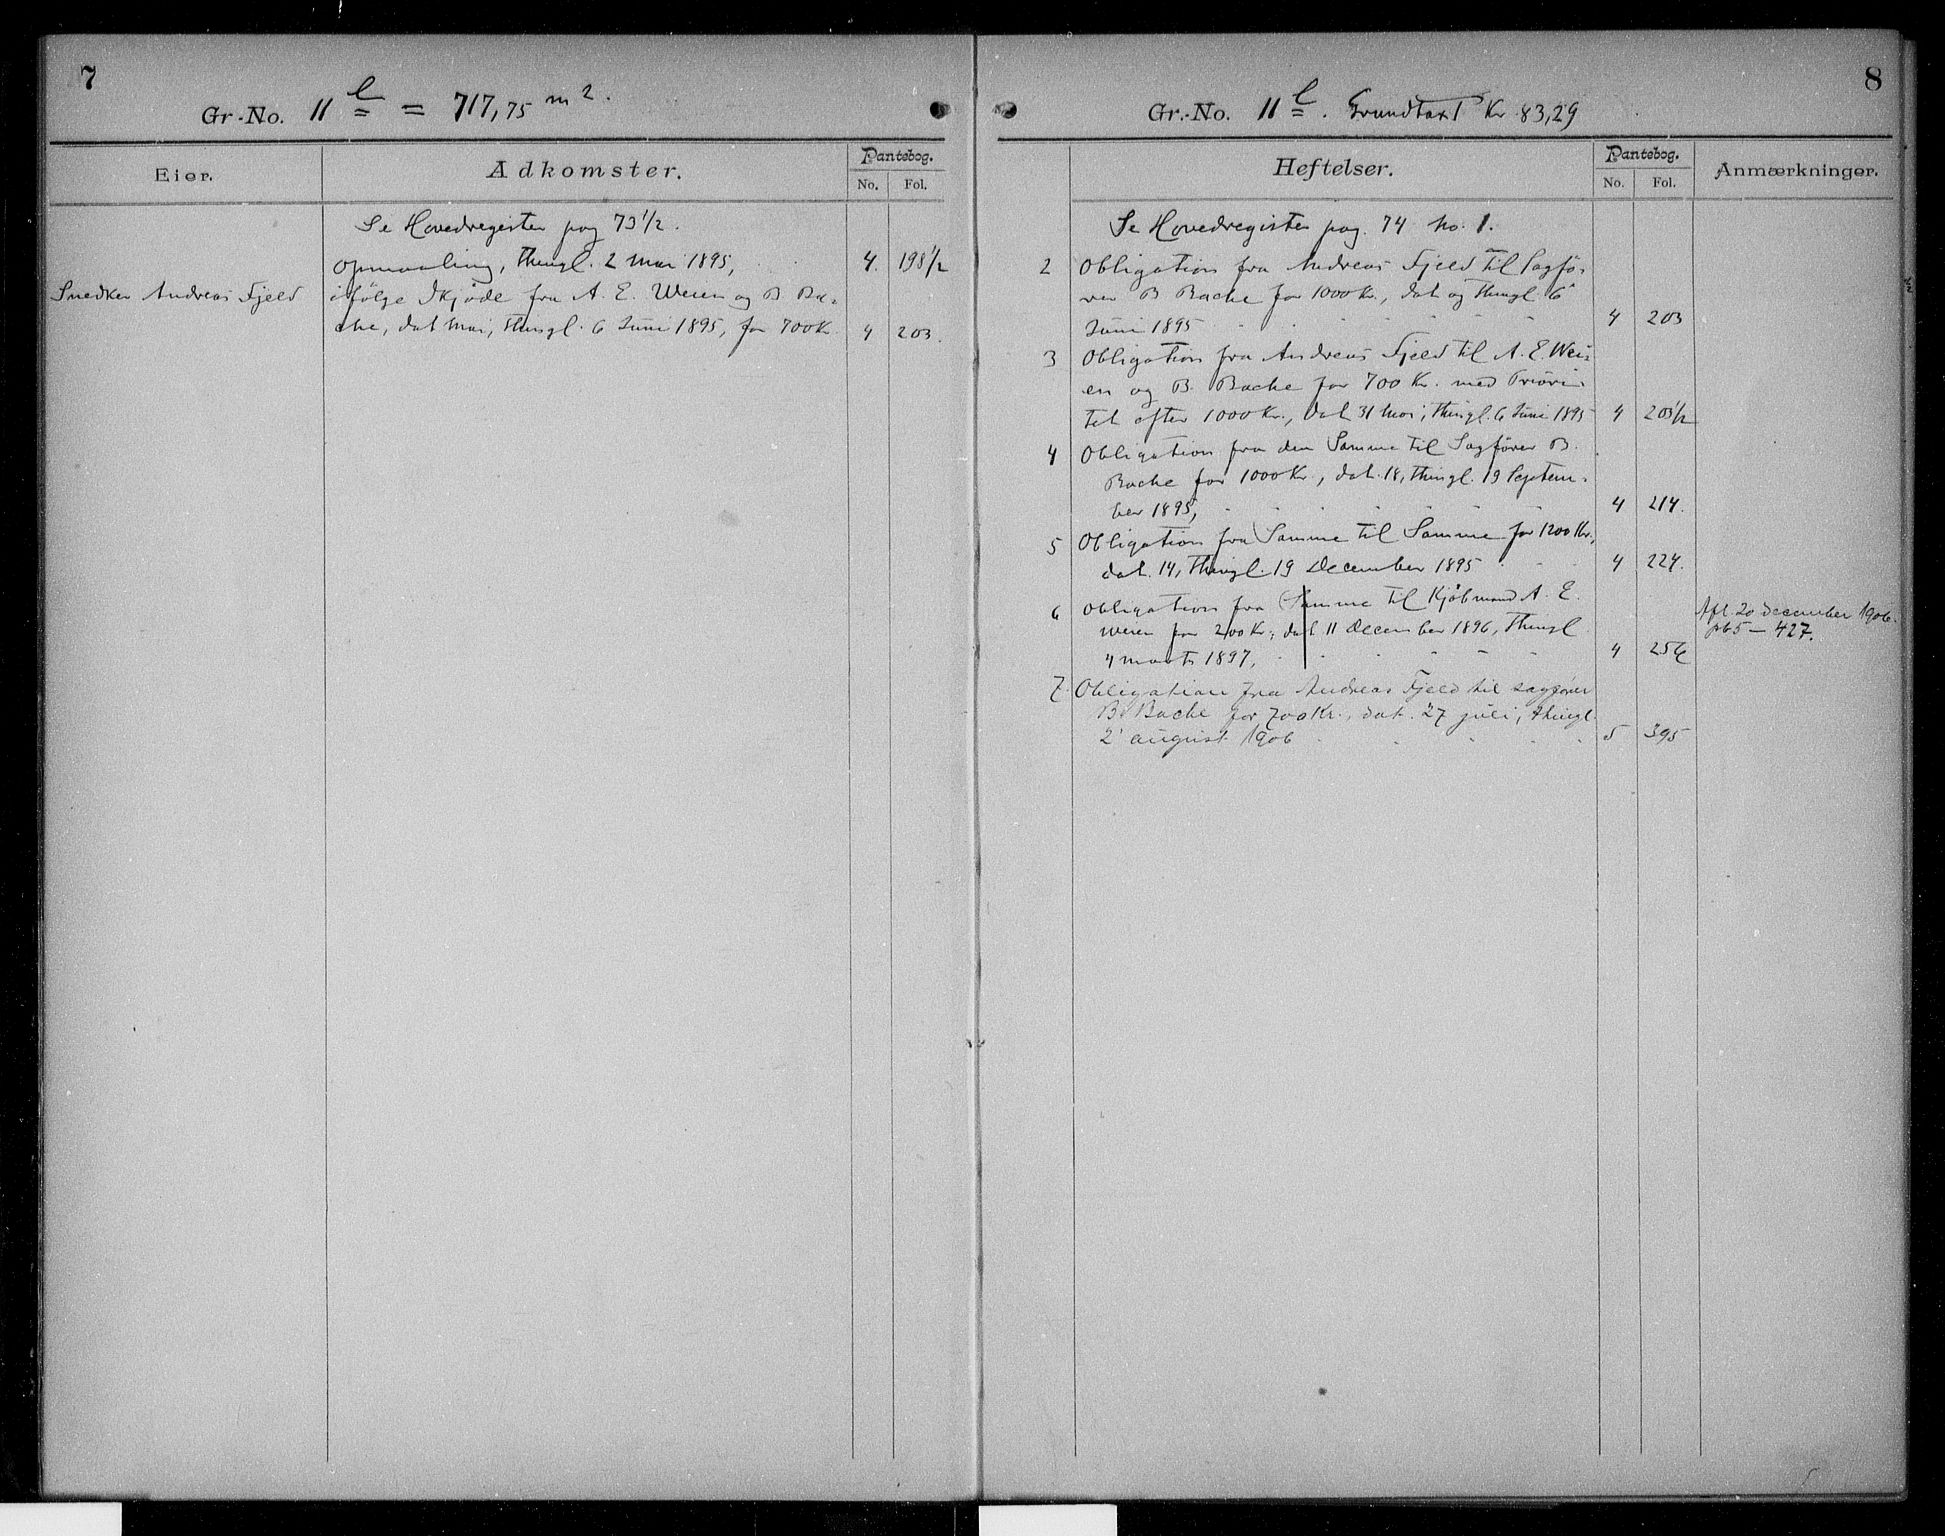 7
Gr.-No. 11 l = 717,75 m2.
Eier.
Adkomster.
Pantebog.
No. Fol.
Se Hovedregister pag 73 1/2.
Opmaaling, thingl. 2 Mai 1895, 4. 198 1/2
Snedker Andreas Fjeld
ifølge Skjøde fra A. E. Weien og B Ba-
che, dat Mai, thingl. 6 Juni 1895, for 700 Kr. 4 203.
8
Gr.-No. 11 l. Grundtaxt Kr 83,29
Heftelser.
Pantebog.
No. Fol.
Anmærkninger.
Se Hovedregister pag. 74 No. 1.
2 Obligation fra Andreas Fjeld til Sagfø-
rer B Bache for 1000 Kr., dat og thingl. 6
Juni 1895 4 203
3 Obligation fra Andreas Fjeld til A. E. Wei-
en og B. Bache for 700 Kr. med Priori-
tet efter 1000 Kr., dat 31 Mai, thingl. 6 Juni 1895 4 203 1/2
4 Obligation fra den Samme til Sagfører B.
Bache for 1000 Kr., dat. 18, thingl. 19 Septem-
ber 1895, 4 214.
5 Obligation fra Samme til Samme for 1200 Kr.,
dat. 14, thingl. 19 December 1895 4 224.
6 Obligation fra Samme til Kjøbmand A. E.
Weien for 200 Kr., dat 11 December 1896, thingl
4 marts 1897, 4 256
Afl. 20 december 1906.
pb 5 — 427.
7. Obligation fra Andreas Fjeld til sagfører
B. Bache for 700 Kr., dat. 27 juli, thingl.
2 august 1906 5 395